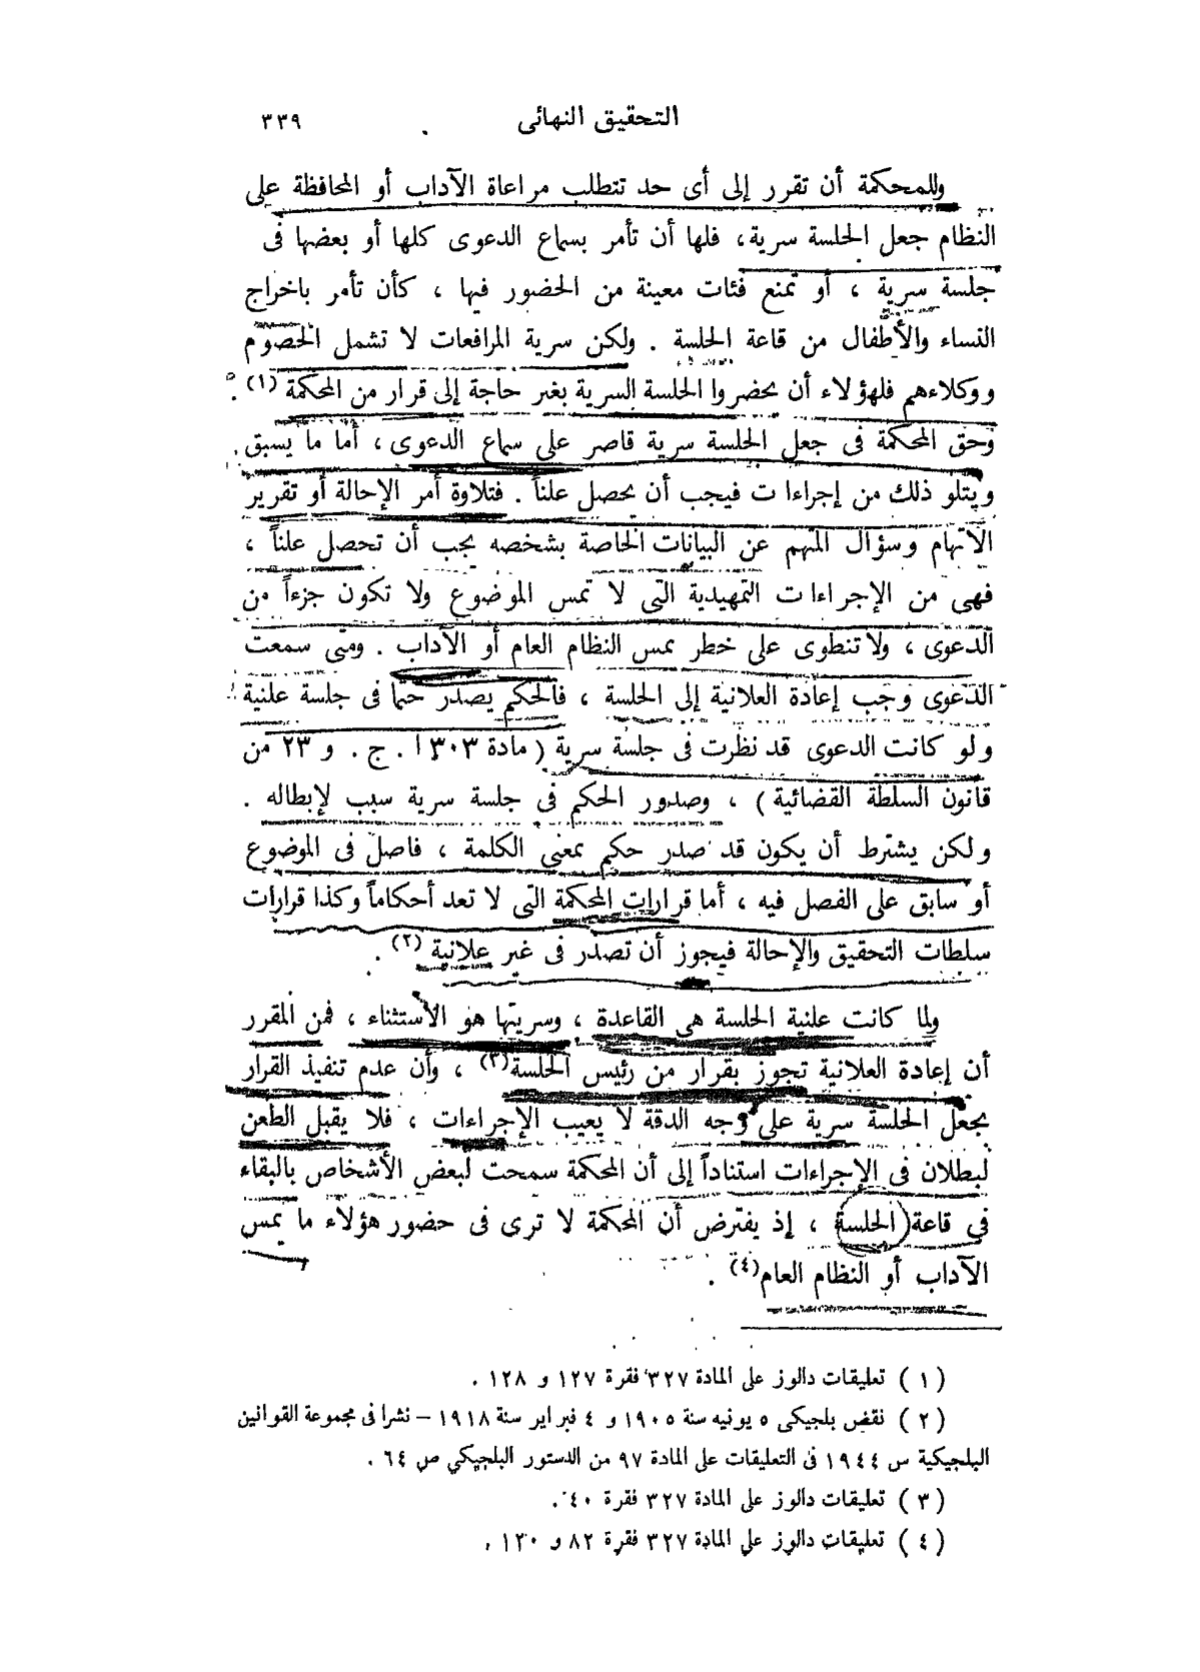 التحقيق النهائى ٣٣٩
وللمحكمة أن تقرر إلى أى حد تتطلب مراعاة الآداب أو المحافظة على
النظام جعل الجلسة سرية، فلها أن تأمر بسماع الدعوى كلها أو بعضها فى
جلسة سرية ، أو تمنع فئات معينة من الحضور فيها ، كأن تأمر باخراج
النساء والأطفال من قاعة الجلسة . ولكن سرية المرافعات لا تشمل الخصوم
ووكلاءهم فلهؤلاء أن يحضروا الجلسة السرية بغير حاجة إلى قرار من المحكمة (١) .
وحق المحكمة فى جعل الجلسة سرية قاصر على سماع الدعوى ، أما ما يسبق
ويتلو ذلك من إجراءات فيجب أن يحصل علناً . فتلاوة أمر الإحالة أو تقرير
الاتهام وسؤال المتهم عن البيانات الخاصة بشخصه يجب أن تحصل علناً ،
فهى من الإجراءات التمهيدية التى لا تمس الموضوع ولا تكون جزءاً من
الدعوى ، ولا تنطوى على خطر يمس النظام العام أو الآداب . ومتى سمعت
الدعوى وجب إعادة العلانية إلى الجلسة ، فالحكم يصدر حتما فى جلسة علنية
ولو كانت الدعوى قد نظرت فى جلسة سرية ( مادة ٣٠٣ ا . ج . و ٢٣ من
قانون السلطة القضائية ) ، وصدور الحكم فى جلسة سرية سبب لإبطاله .
ولكن يشترط أن يكون قد صدر حكم بمعنى الكلمة ، فاصل فى الموضوع
أو سابق على الفصل فيه ، أما قرارات المحكمة التى لا تعد أحكاماً وكذا قرارات
سلطات التحقيق والإحالة فيجوز أن تصدر فى غير علانية (٢) .
ولما كانت علنية الجلسة هى القاعدة ، وسريتها هو الأستثناء ، فمن المقرر
أن إعادة العلانية تجوز بقرار من رئيس الجلسة(٣) ، وأن عدم تنفيذ القرار
بجعل الجلسة سرية على وجه الدقة لا يعيب الإجراءات ، فلا يقبل الطعن
لبطلان فى الإجراءات استناداً إلى أن المحكمة سمحت لبعض الأشخاص بالبقاء
فى قاعة الجلسة ، إذ يفترض أن المحكمة لا ترى فى حضور هؤلاء ما يمس
الآداب أو النظام العام(٤) .
( ١ ) تعليقات دالوز على المادة ٣٢٧ فقرة ١٢٧ و ١٢٨ .
( ٢ ) نقض بلجيكى ٥ يونيه سنة ١٩٠٥ و ٤ فبراير سنة ١٩١٨ – نشرا فى مجموعة القوانين
البلجيكية س ١٩٤٤ فى التعليقات على المادة ٩٧ من الدستور البلجيكي ص ٦٤ .
( ٣ ) تعليقات دالوز على المادة ٣٢٧ فقرة ٤٠ .
( ٤ ) تعليقات دالوز على المادة ٣٢٧ فقرة ٨٢ و ١٣٠ .